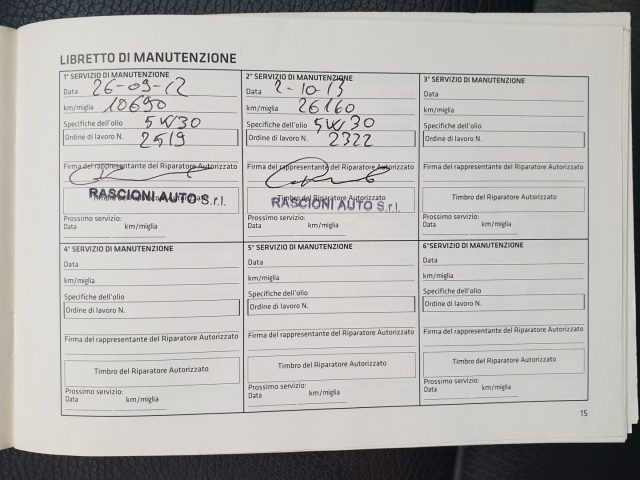 LIBRETTO DI MANUTENZIONE
1° SERVIZIO DI MANUTENZIONE
Data 26-09-12
km/miglia 10690
Specifiche dell'olio 5W30
Ordine di lavoro N. 2519
Firma del rappresentante del Riparatore Autorizzato
Timbro del Riparatore Autorizzato
RASCIONI AUTO S.r.l.
Prossimo servizio:
Data km/miglia
2° SERVIZIO DI MANUTENZIONE
Data 2-10-13
km/miglia 26160
Specifiche dell'olio 5W30
Ordine di lavoro N. 2322
Firma del rappresentante del Riparatore Autorizzato
Timbro del Riparatore Autorizzato
RASCIONI AUTO S.r.l.
Prossimo servizio:
Data km/miglia
3° SERVIZIO DI MANUTENZIONE
Data
km/miglia
Specifiche dell'olio
Ordine di lavoro N.
Firma del rappresentante del Riparatore Autorizzato
Timbro del Riparatore Autorizzato
Prossimo servizio:
Data km/miglia
4° SERVIZIO DI MANUTENZIONE
Data
km/miglia
Specifiche dell'olio
Ordine di lavoro N.
Firma del rappresentante del Riparatore Autorizzato
Timbro del Riparatore Autorizzato
Prossimo servizio:
Data km/miglia
5° SERVIZIO DI MANUTENZIONE
Data
km/miglia
Specifiche dell'olio
Ordine di lavoro N.
Firma del rappresentante del Riparatore Autorizzato
Timbro del Riparatore Autorizzato
Prossimo servizio:
Data km/miglia
6° SERVIZIO DI MANUTENZIONE
Data
km/miglia
Specifiche dell'olio
Ordine di lavoro N.
Firma del rappresentante del Riparatore Autorizzato
Timbro del Riparatore Autorizzato
Prossimo servizio:
Data km/miglia
15